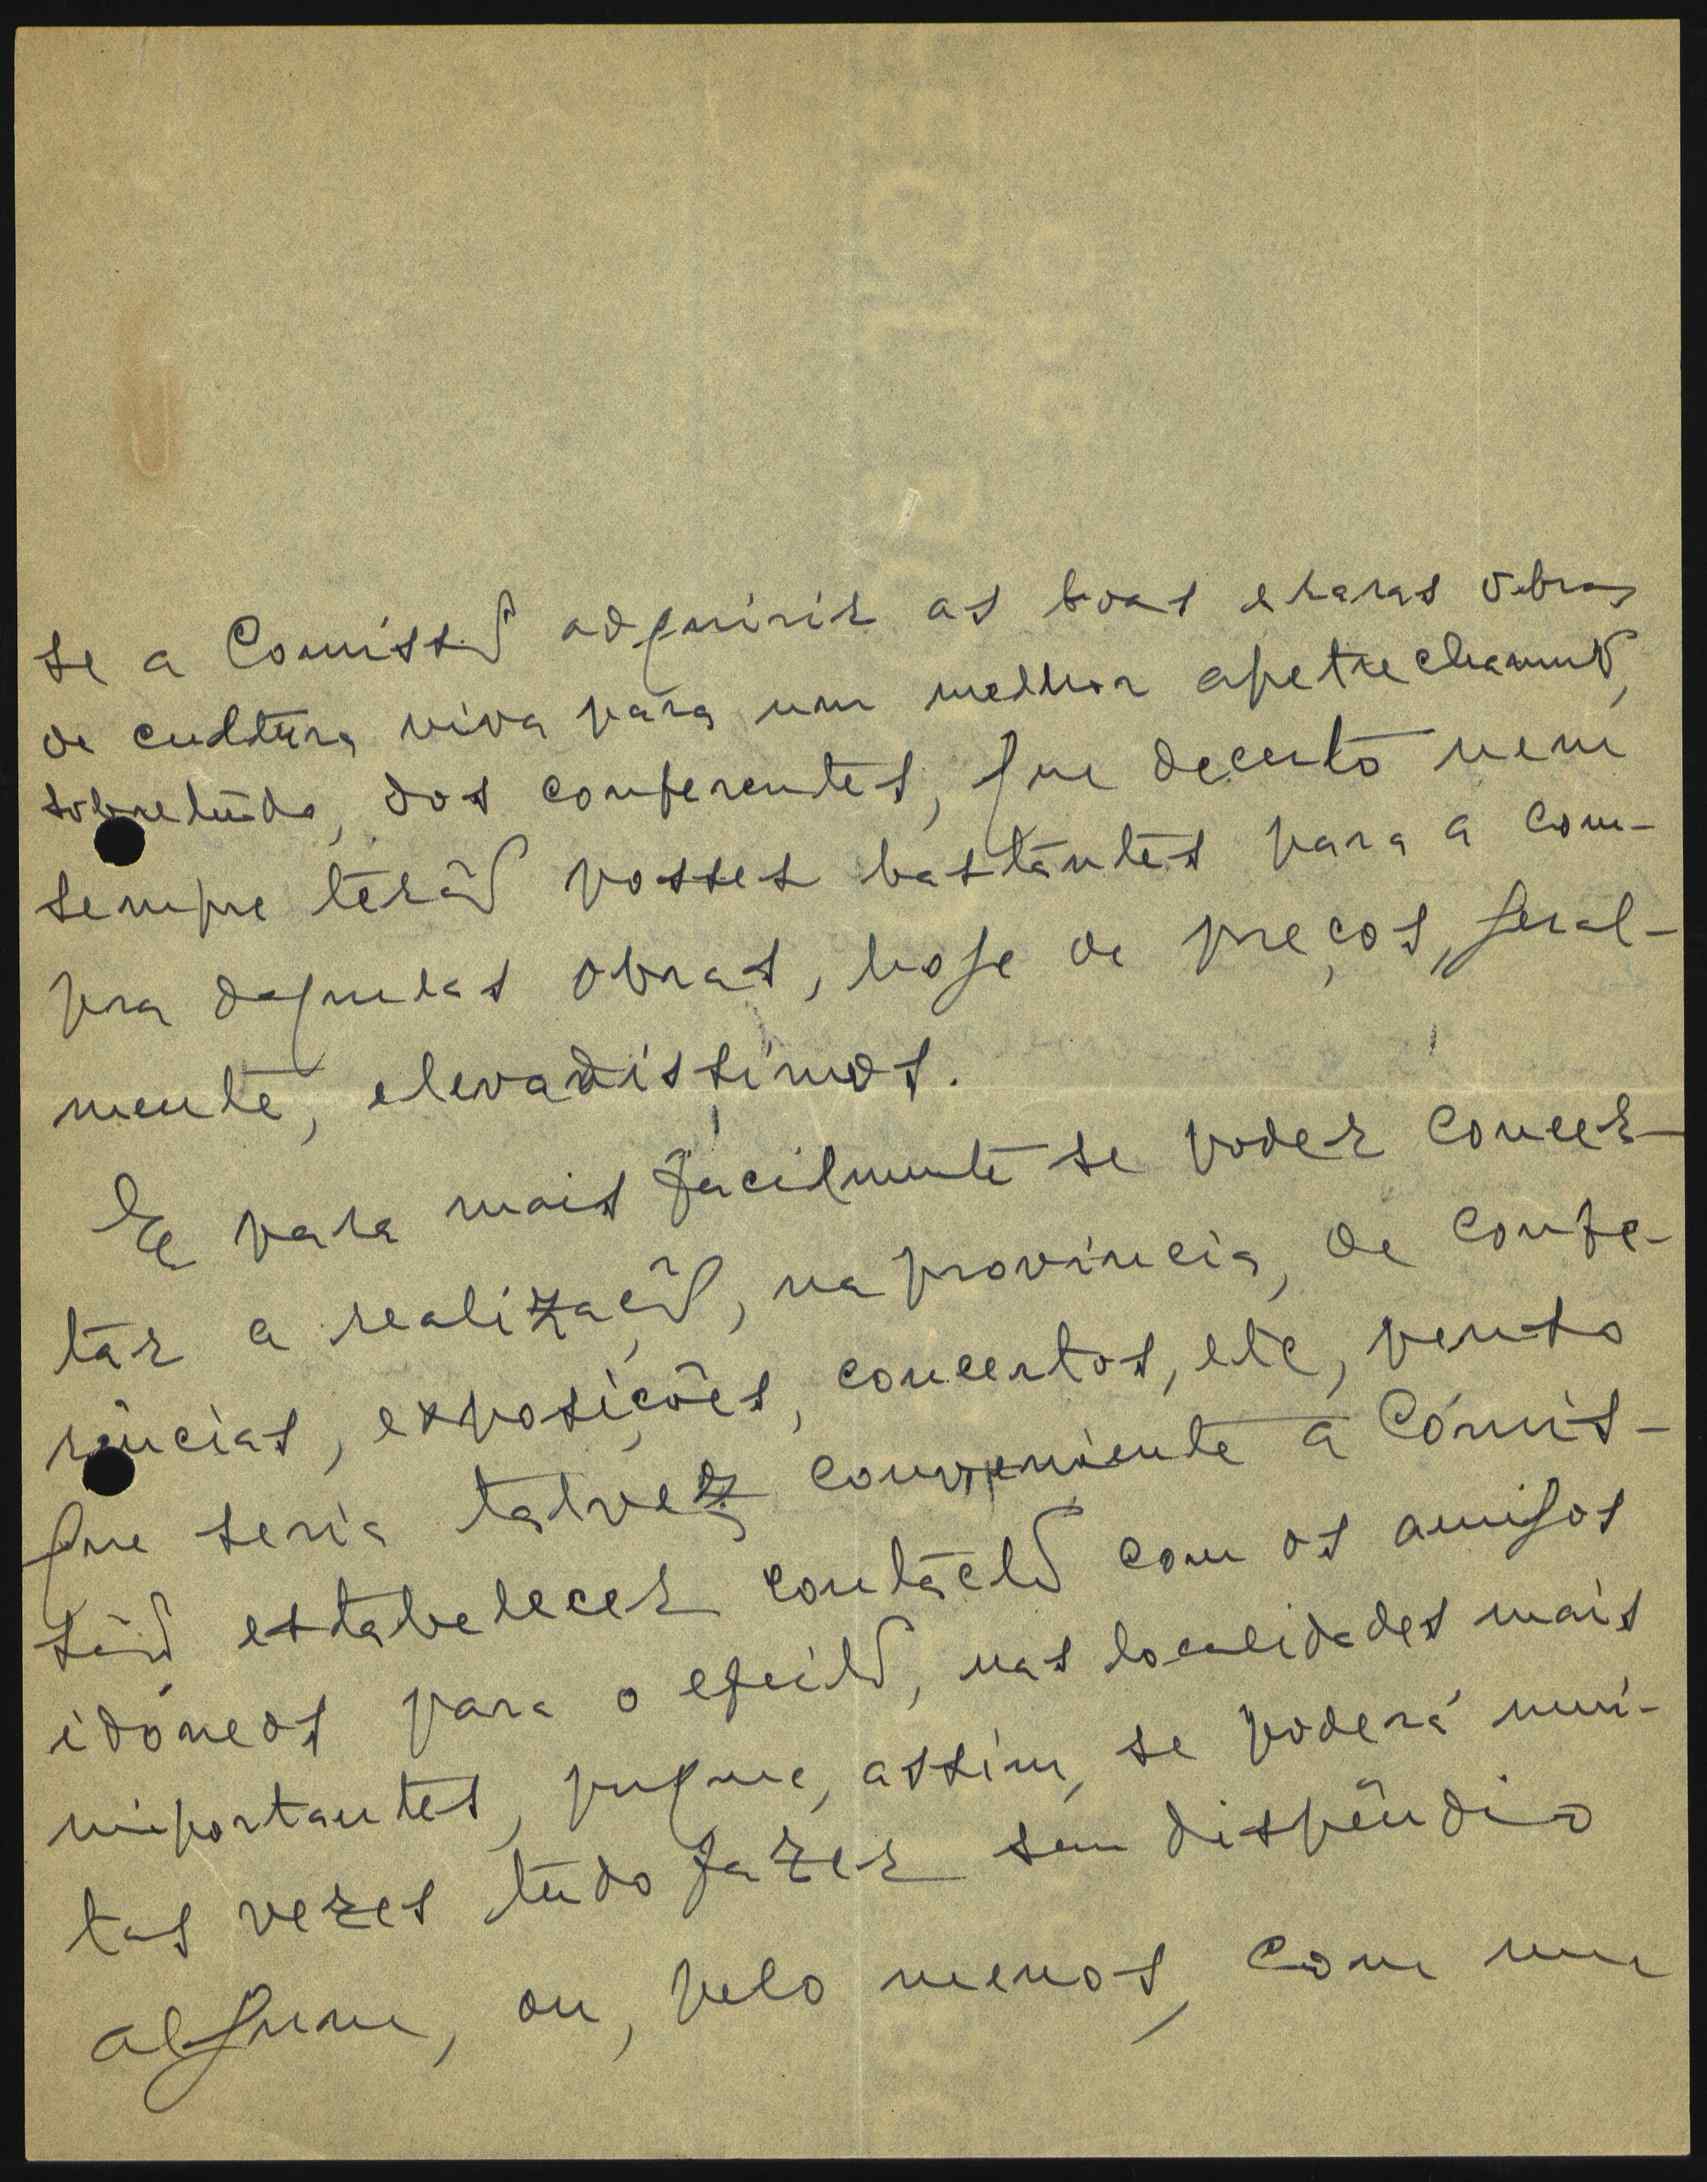 se a Comissão adquirir as boas e raras obras
de cultura viva para um melhor apetrechamento,
sobretudo, dos conferentes, que decerto nem
sempre terão posses bastantes para a com-
pra daquelas obras, hoje de preços, geral-
mente, elevadissimos.
E para mais fácilmente se poder concer-
tar a realização, na provincia, de confe-
rências, exposições, concertos, etc, penso
que seria talvez conveniente a Comis-
são estabelecer contacto com os amigos
idóneos para o efeito, nas localidades mais
importantes, porque, assim, se poderá mui-
tas vezes tudo fazer sem dispêndio
algum, ou, pelo menos, com um